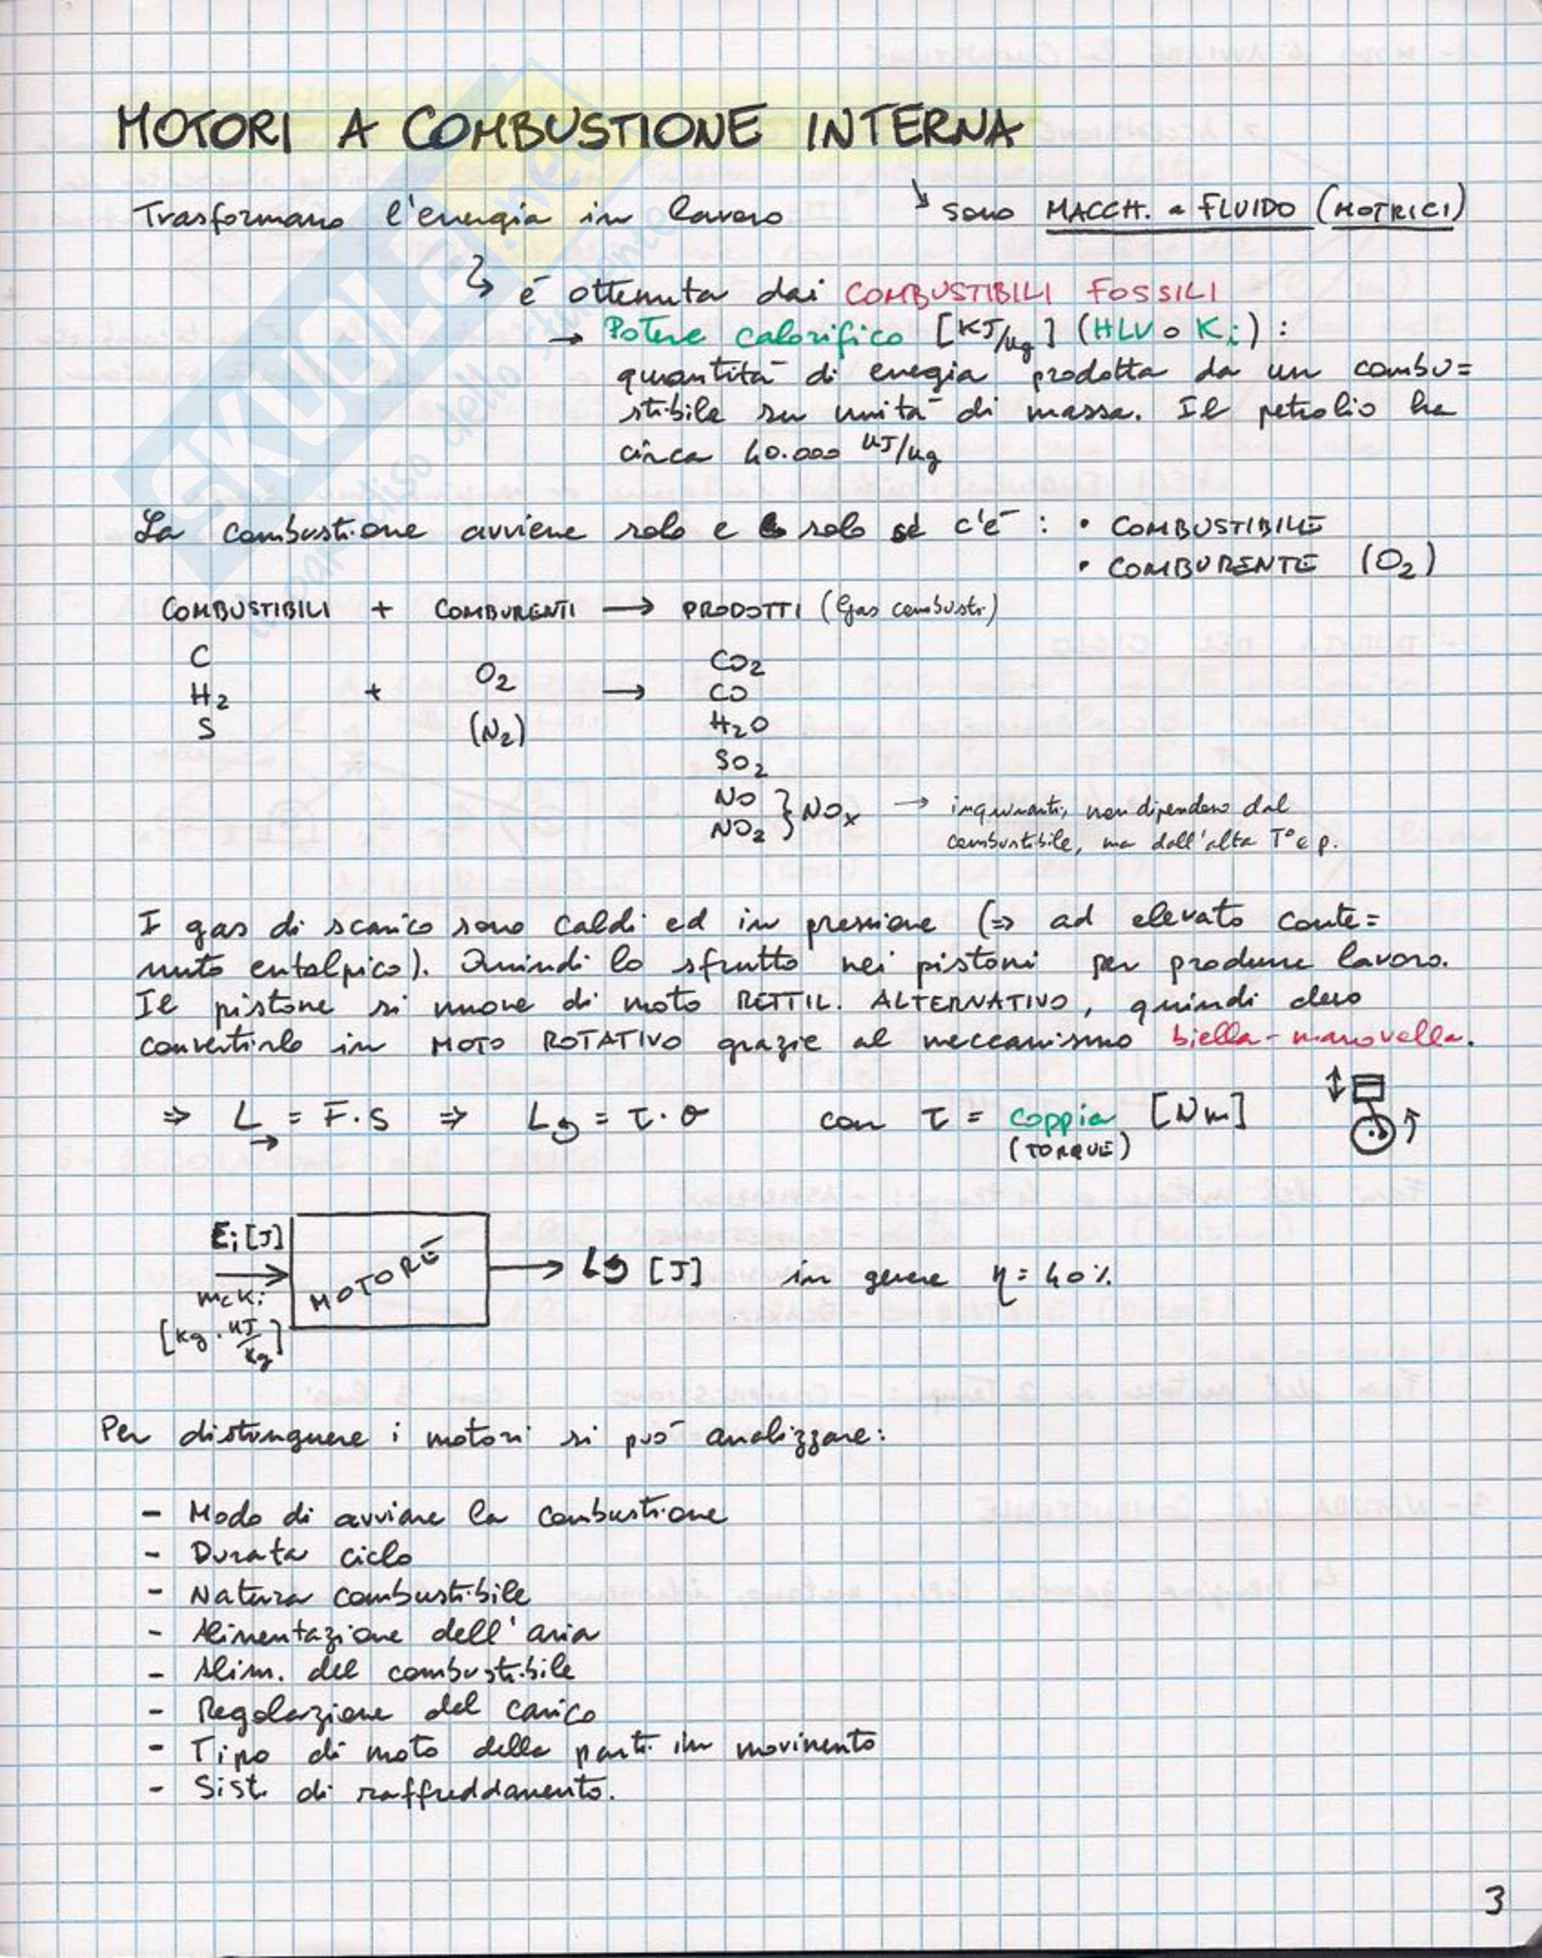 MOTORI A COMBUSTIONE INTERNA
Trasformano l'energia in lavoro ↘ sono MACCH. a FLUIDO (MOTRICI)
↳ è ottenuta dai COMBUSTIBILI FOSSILI
→ Potere calorifico [KJ/kg] (HLV o Ki) :
quantità di energia prodotta da un combu=
stibile su unità di massa. Il petrolio ha
circa 40.000 kJ/kg
La combustione avviene solo e solo se c'è : • COMBUSTIBILE
• COMBURENTE (O2)
COMBUSTIBILI + COMBURENTI → PRODOTTI (Gas combusti)
C
H2
S
+
O2
(N2)
→
CO2
CO
H2O
SO2
NO
NO2
} NOx → inquinanti, non dipendono dal
combustibile, ma dall'alta T° e p.
I gas di scarico sono caldi ed in pressione (⇒ ad elevato conte=
nuto entalpico). Quindi lo sfrutto nei pistoni per produrre lavoro.
Il pistone si muove di moto RETTIL. ALTERNATIVO, quindi devo
convertirlo in MOTO ROTATIVO grazie al meccanismo biella-manovella.
⇒ L→ = F·S ⇒ L = τ·θ con τ = coppia [Nm]
(TORQUE)
Ei [J]
mc Ki
[kg · kJ/kg]
MOTORE
→ L [J] in genere η = 40%
Per distinguere i motori si può analizzare:
- Modo di avviare la combustione
- Durata ciclo
- Natura combustibile
- Alimentazione dell'aria
- Alim. del combustibile
- Regolazione del carico
- Tipo di moto delle parti in movimento
- Sist. di raffreddamento.
3
SKUOLA.net
il paradiso dello studente